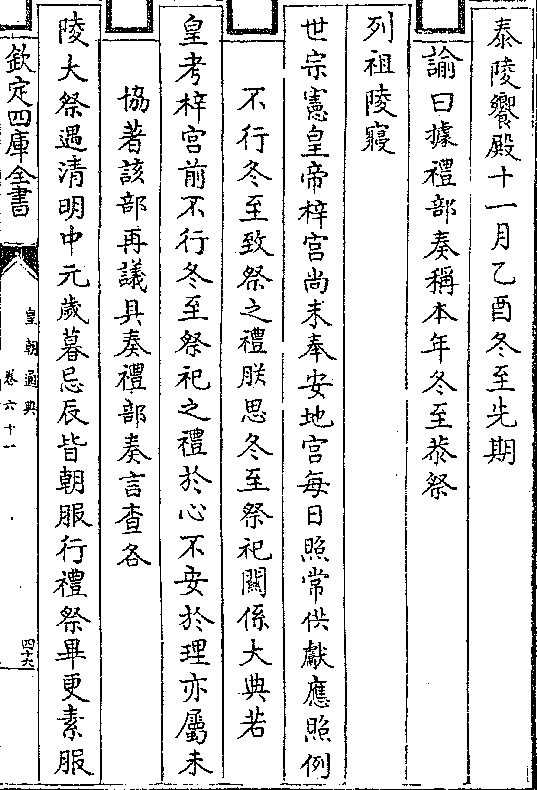 泰陵饗殿十一月乙酉冬至先期
諭曰據禮部奏稱本年冬至恭祭
列祖陵寢
世宗憲皇帝梓宮尚未奉安地宮每日照常供獻應照例
不行冬至致祭之禮朕思冬至祭祀關係大典若
皇考梓宮前不行冬至祭祀之禮於心不安於理亦屬未
協著該部再議具奏禮部奏言查各
陵大祭遇清明中元歲暮忌辰皆朝服行禮祭畢更素服
欽定四庫全書
皇朝通典
卷六十一
四十六